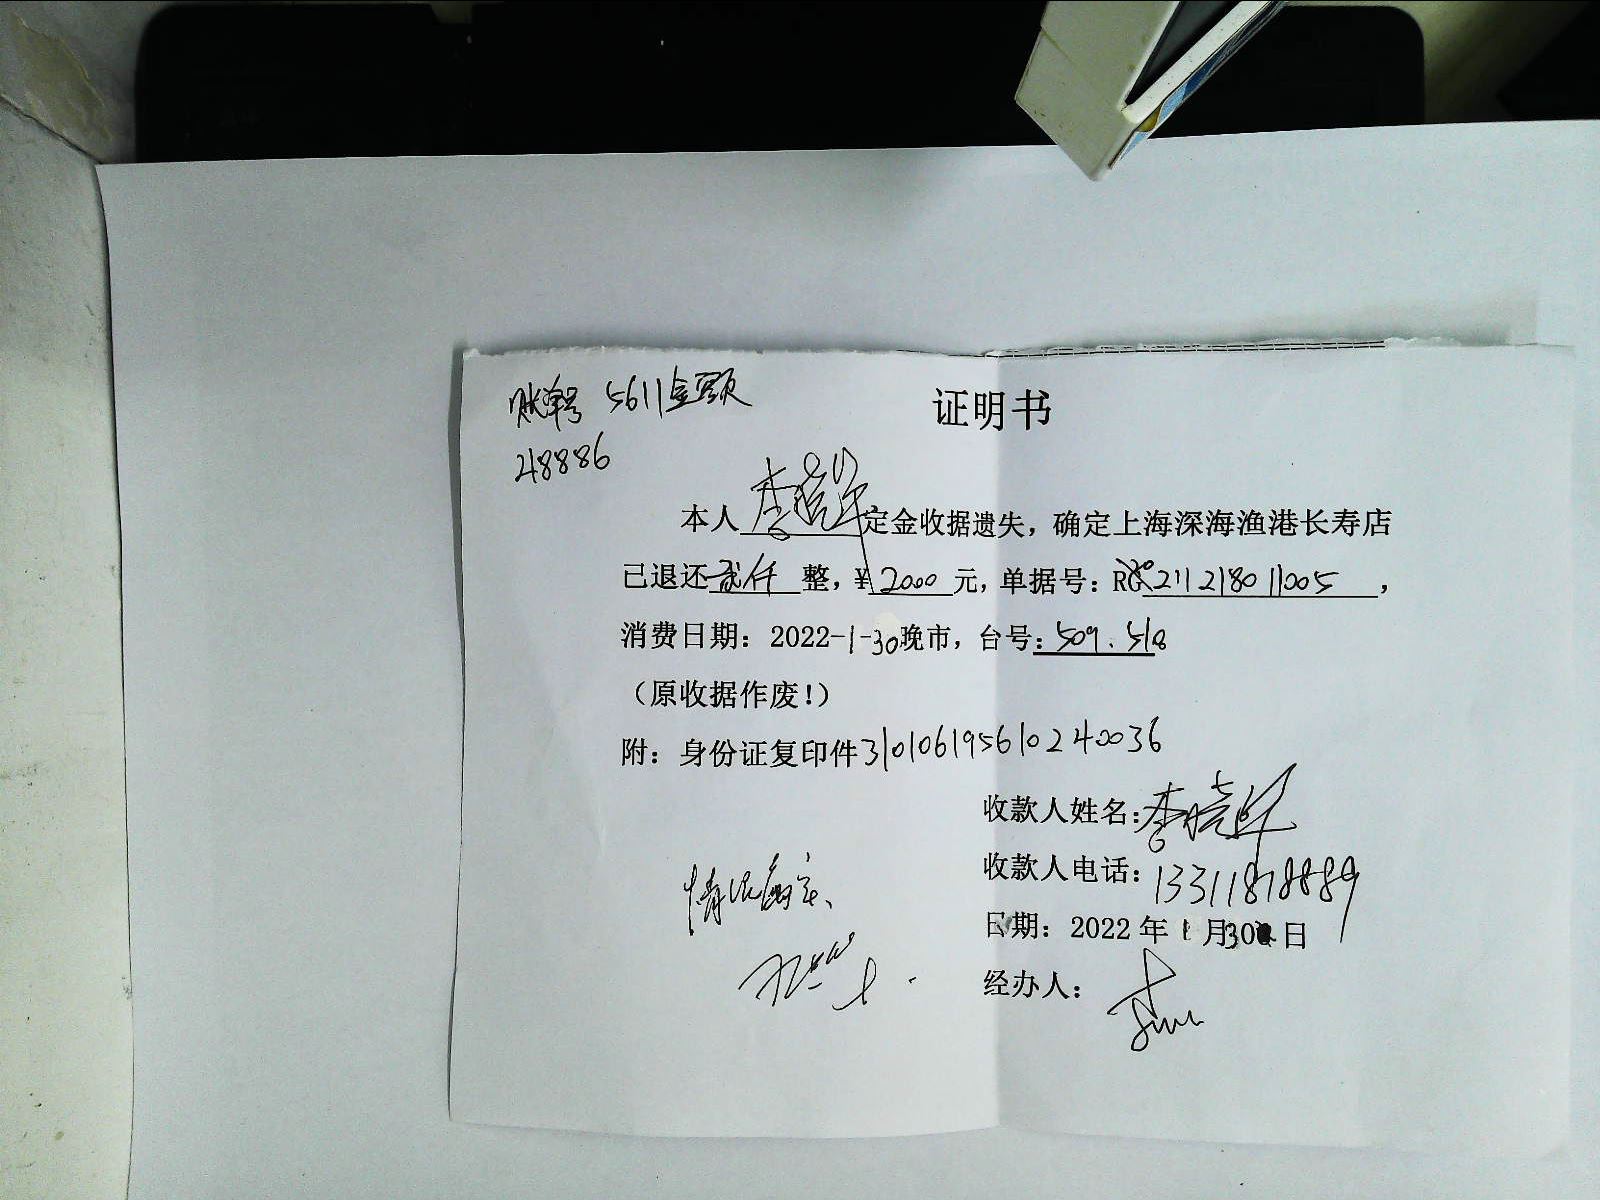 账单号 5611金额
证明书
48886
本人李晓华定金收据遗失，确定上海深海渔港长寿店
已退还贰仟整，¥2000元，单据号：RG211218011005，
消费日期：2022-1-30晚市，台号：509.518
（原收据作废！）
附：身份证复印件310106195610240036
收款人姓名：李晓华
收款人电话：13311818889
情况属实、
日期：2022年1月30日
经办人：